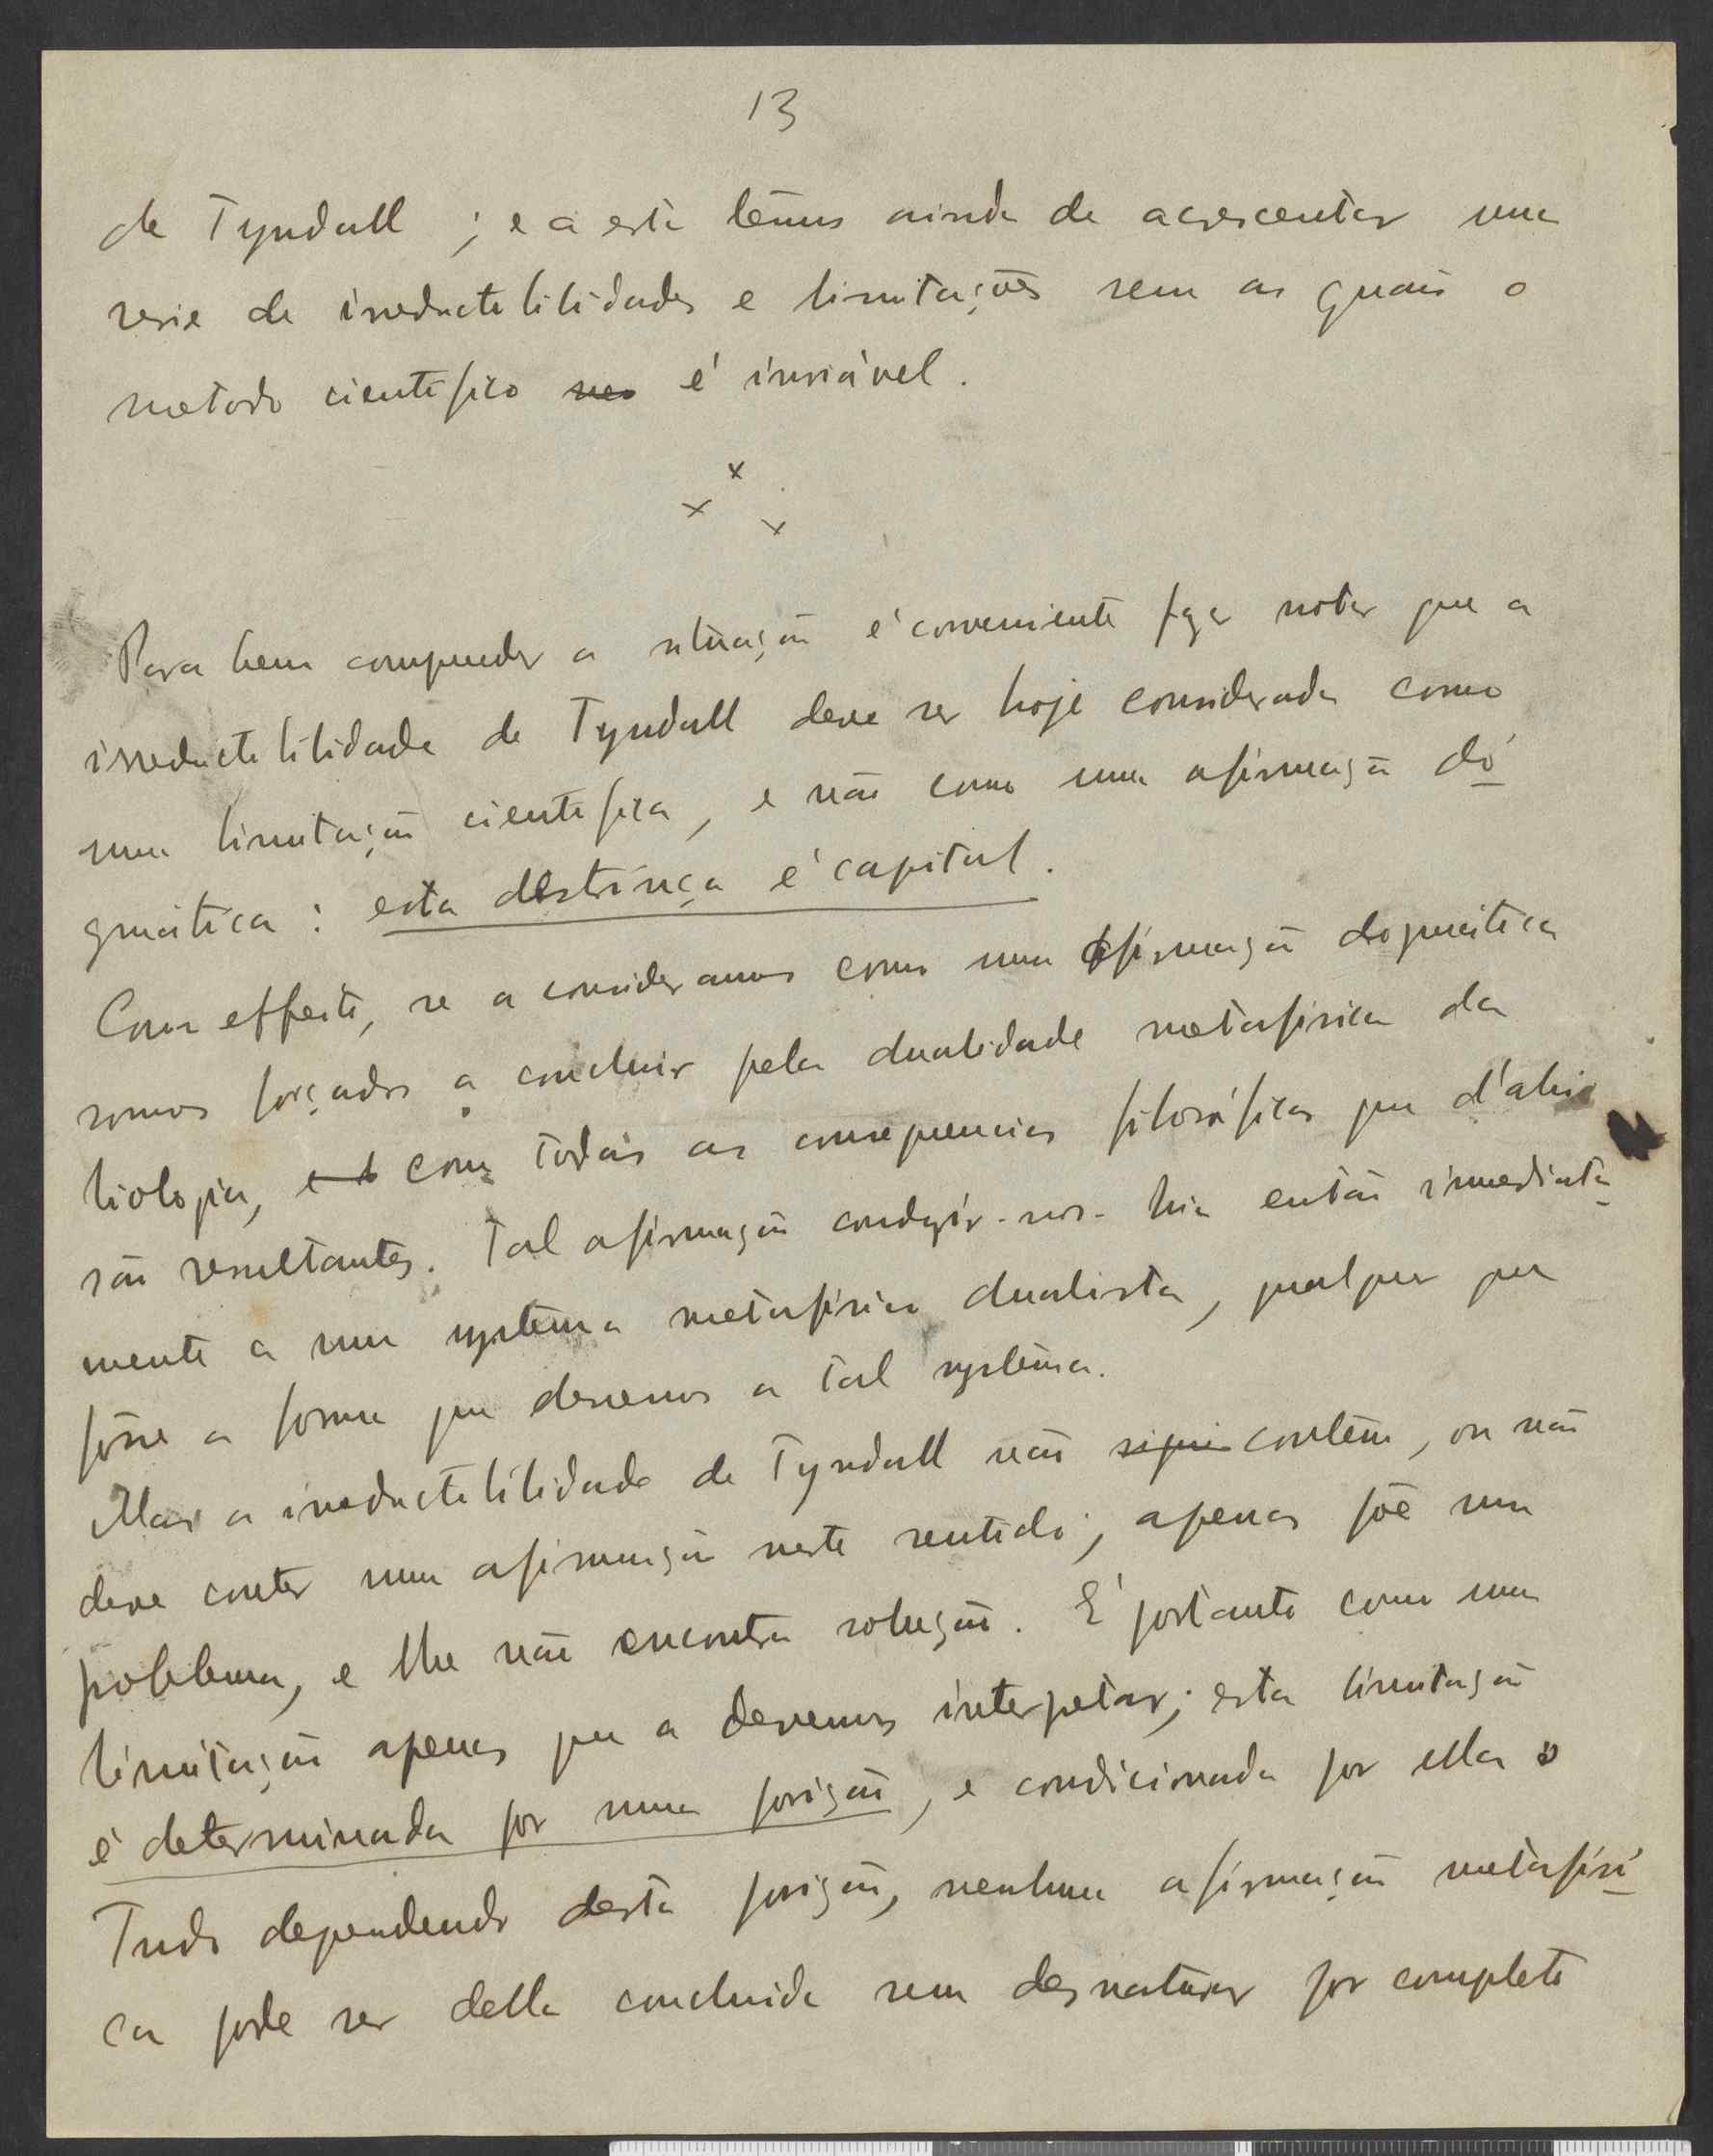 13
de Tyndall ; e a esta temos ainda de acrescentar uma
serie de irreductibilidades e limitações sem as quais o
metodo cientifico é inviável.
x
x x
Para bem comprender a situação é conveniente fazer notar que a
irreductibilidade de Tyndall deve ser hoje considerada como
uma limitação cientifica, e não como uma afirmação dó
gmática : esta destrinça é capital.
Com effeito, se a consideramos como uma afirmação dogmática
somos forçados a concluir pela dualidade metafisica da
biologia, com todas as consequencias filosóficas que d'ahi
são resultantes. Tal afirmação conduzir-nos-hia então immediata-
mente a um systema metafisico dualista, qualquer que
fosse a forma que dessemos a tal systema.
Mas a irreductibilidade de Tyndall não contem, ou não
deve conter uma afirmação neste sentido; apenas põe um
problema, e lhe não encontra solução. É portanto como uma
limitação apenas que a devemos interpetar; esta limitação
é determinada por uma posição, e condicionada por ella
Tudo dependendo desta posição, nenhuma afirmação metafisi-
ca pode ser della concluida sem desnaturar por completo